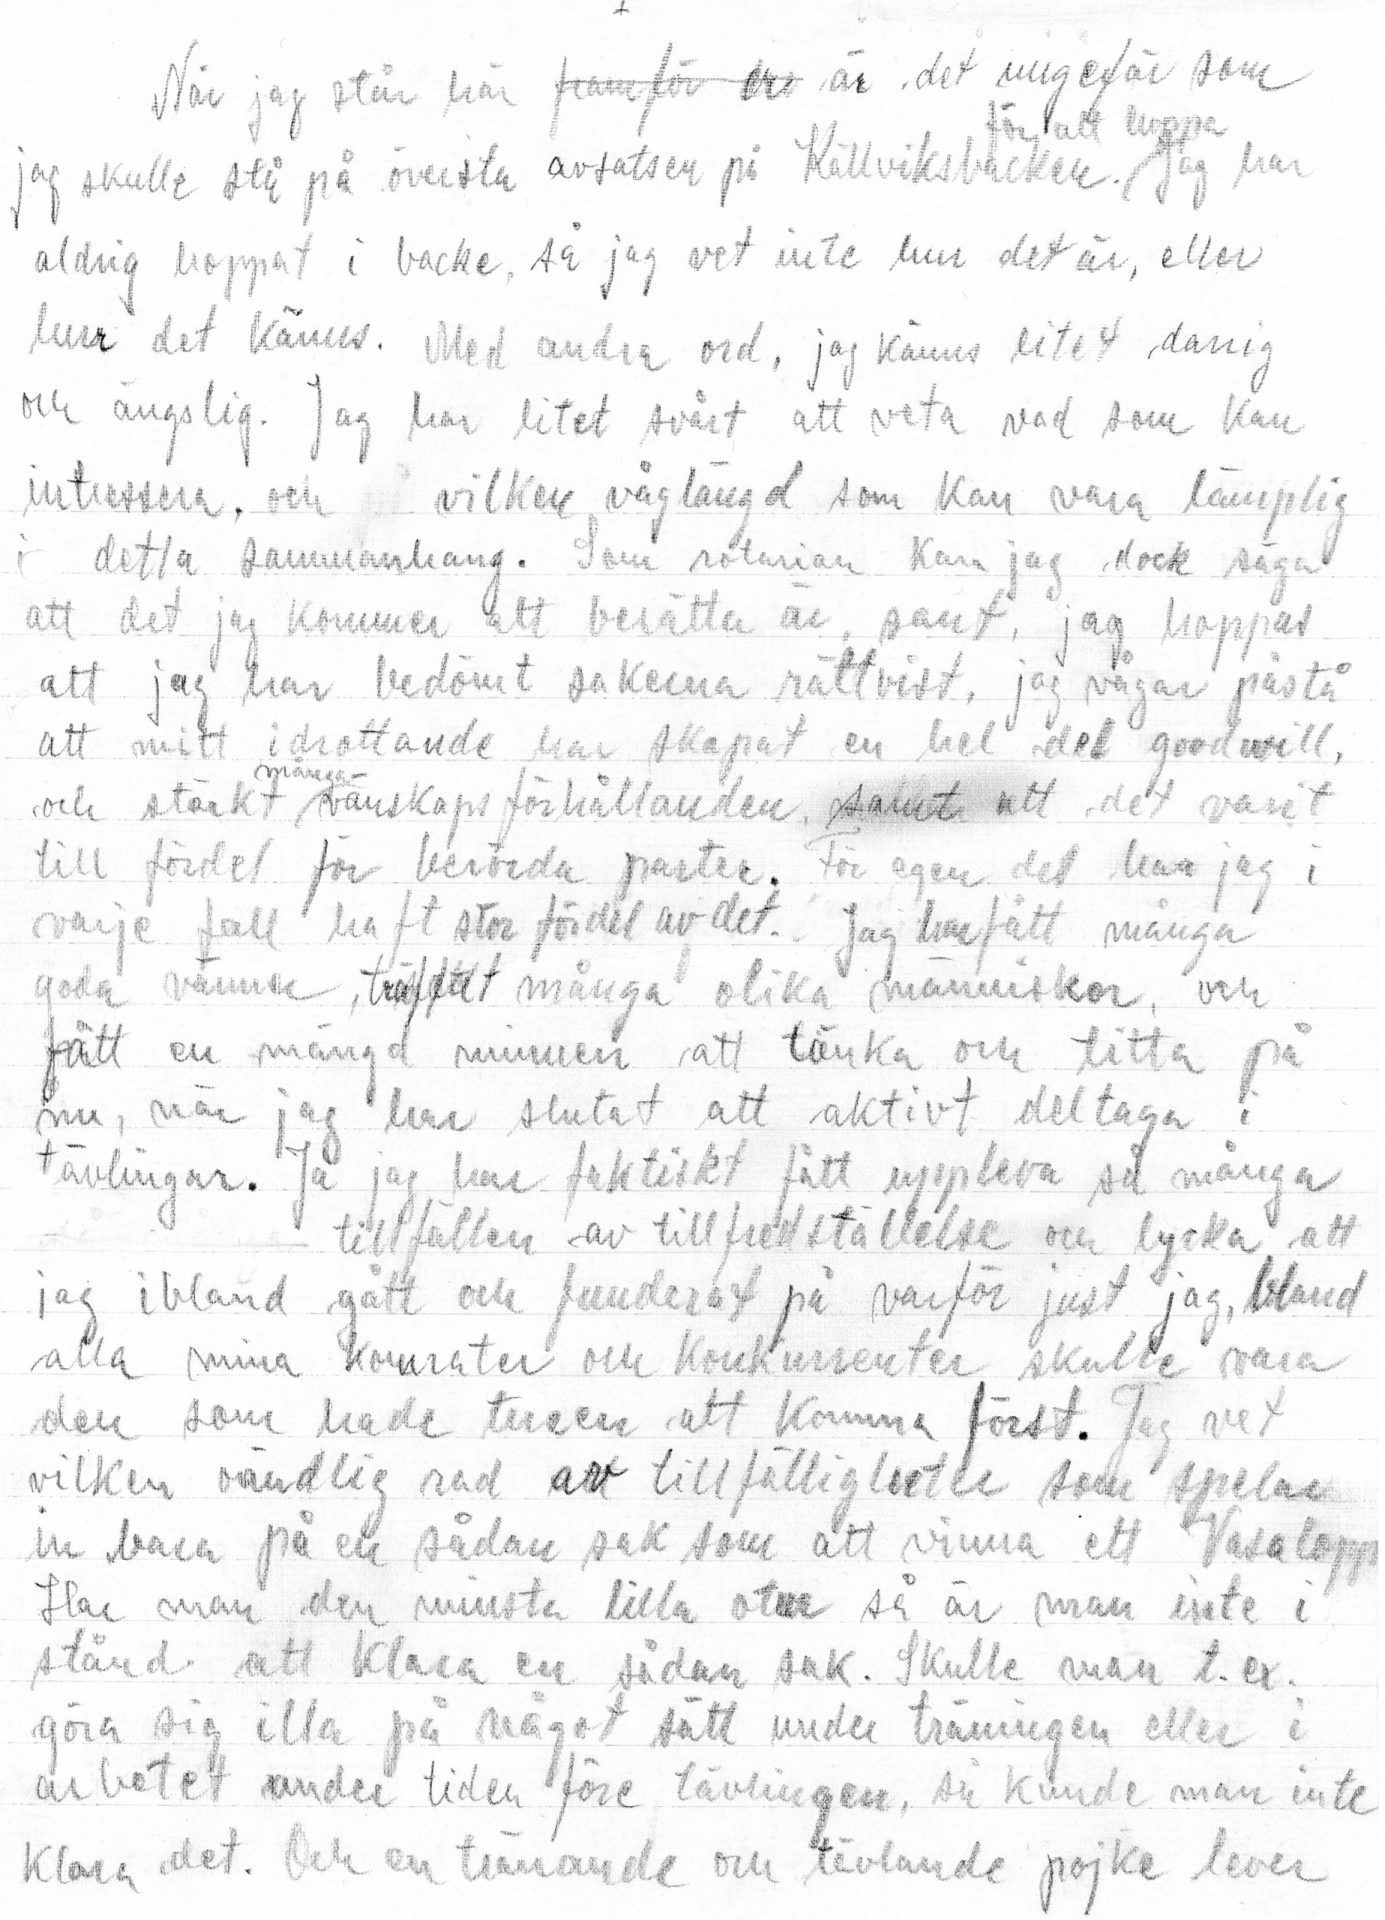 1
När jag står här framför er är det ungefär som
för att hoppa
jag skulle stå på översta avsatsen på Källviksbacken. Jag har
aldrig hoppat i backe, så jag vet inte hur det är, eller
hur det känns. Med andra ord, jag känns litet darrig
och ängslig. Jag har litet svårt att veta vad som kan
intressera, och vilken våglängd som kan vara lämplig
i detta sammanhang. Som rotarian kan jag dock säga
att det jag kommer att berätta är sant, jag hoppas
att jag har bedömt sakerna rättvist, jag vågar påstå
att mitt idrottande har skapat en hel del goodwill,
många
och stärkt vänskapsförhållanden, samt att det varit
till fördel för berörda parter. För egen del har jag i
varje fall haft stor fördel av det. Jag har fått många
goda vänner, träffat många olika människor, och
fått en mängd minnen att tänka och titta på
nu, när jag har slutat att aktivt deltaga i
tävlingar. Ja jag har faktiskt fått uppleva så många
tillfällen av tillfredställelse och lycka att
jag ibland gått och funderat på varför just jag, bland
alla mina kamrater och konkurrenter skulle vara
den som hade turen att komma först. Jag vet
vilken oändlig rad av tillfälligheter som spelar
in bara på en sådan sak som att vinna ett Vasalopp
Har man den minsta lilla otur så är man inte i
stånd att klara en sådan sak. Skulle man t.ex.
göra sig illa på något sätt under träningen eller i
arbetet under tiden före tävlingen, så kunde man inte
klara det. Och en tränande och tävlande pojke lever